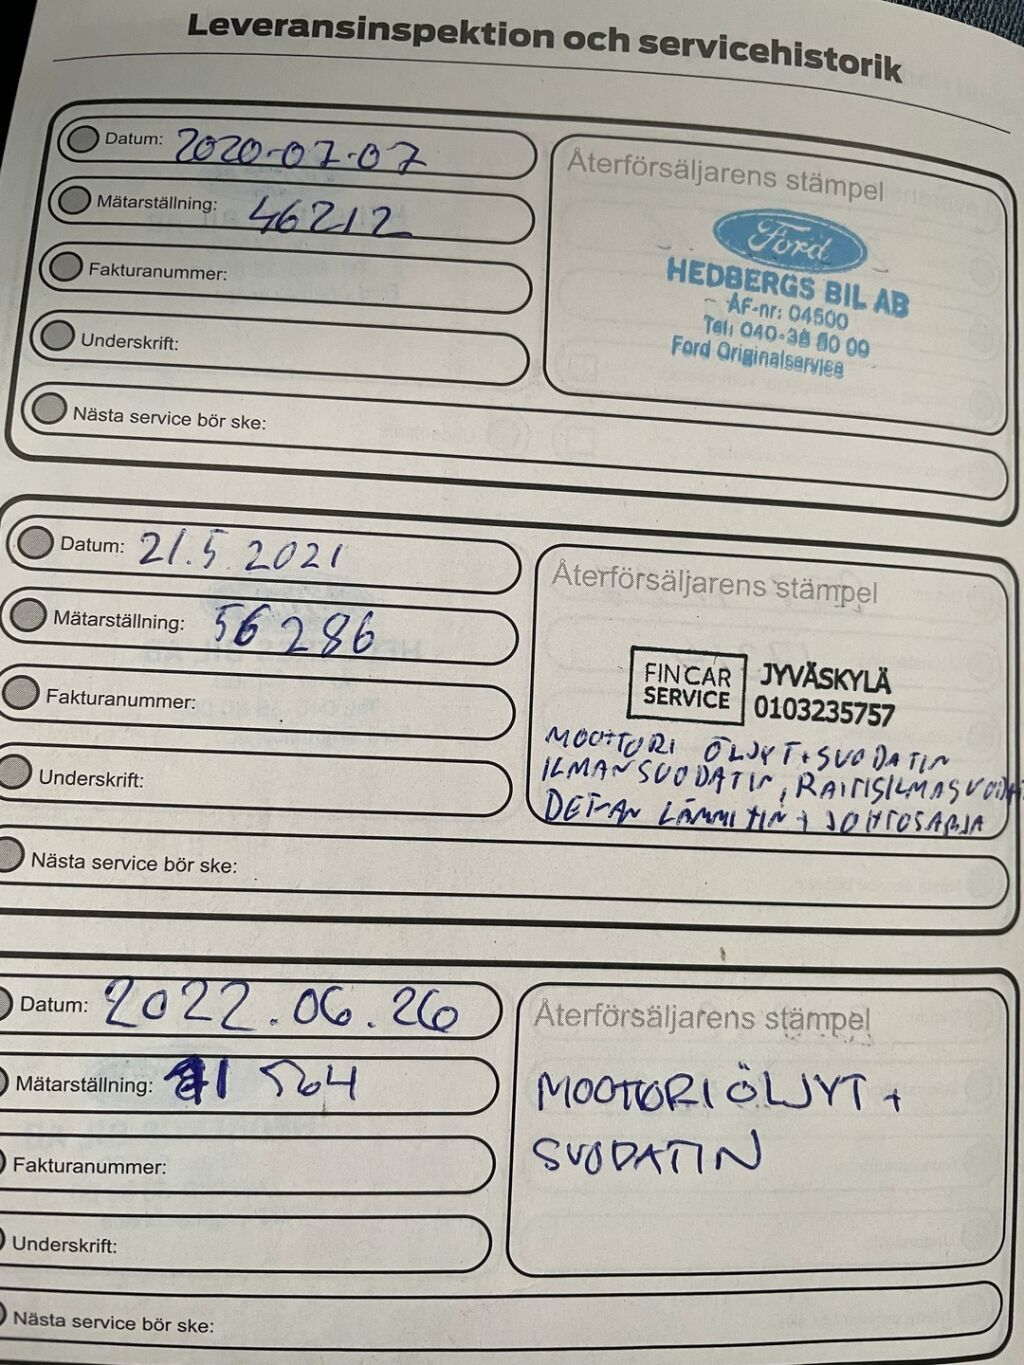 Leveransinspektion och servicehistorik
Datum: 2020-07-07
Mätarställning: 46212
Fakturanummer:
Underskrift:
Nästa service bör ske:
Återförsäljarens stämpel
Ford
HEDBERGS BIL AB
ÅF-nr: 04500
Tel: 040-38 50 09
Ford Originalservice
Datum: 21.5.2021
Mätarställning: 56286
Fakturanummer:
Underskrift:
Nästa service bör ske:
Återförsäljarens stämpel
FIN CAR SERVICE
JYVÄSKYLÄ
0103235757
MOOTTORI ÖLJYT+SUODATIN
ILMANSUODATIN, RAITISILMASUODAT
LÄMMITIN + JOHTOSARJA
Datum: 2022.06.26
Mätarställning: 564
Fakturanummer:
Underskrift:
Nästa service bör ske:
Återförsäljarens stämpel
MOOTTORIÖLJYT +
SUODATIN